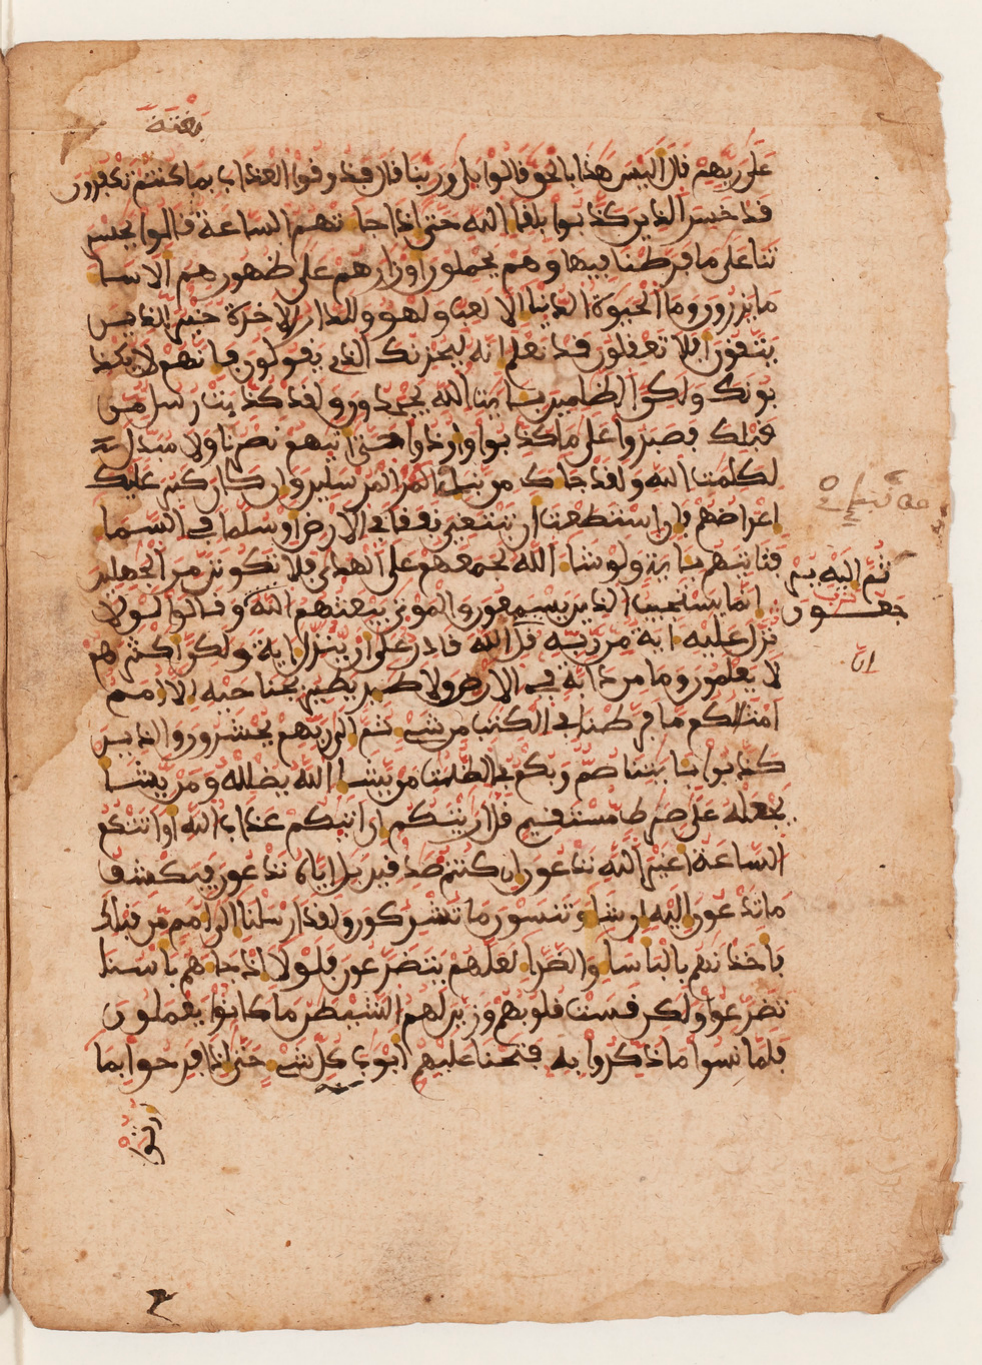 بغتة
على ربهم قال اليس هذا بالحق قالوا بلى وربنا قال فذوقوا العذاب بما كنتم تكفرون
قد خسر الذين كذبوا بلقا الله حتى اذا جا تهم الساعة قالوا يحسر
تنا على ما فرطنا فيها وهم يحملون اوزارهم على ظهورهم الا سا
ما يزرون وما الحيوة الدنيا الا لعب ولهو وللدار الاخرة خير للذين
يتقون افلا تعقلون قد نعلم انه ليحزنك الذي يقولون فانهم لا يكذ
بونك ولكن الظلمين بايت الله يجحدون ولقد كذبت رسل من
قبلك فصبروا على ما كذبوا واوذوا حتى اتيهم نصرنا ولا مبدل
لكلمت الله ولقد جاك من نباى المرسلين وان كان كبر عليك
اعراضهم فان استطعت ان تبتغي نفقا في الارض او سلما في السما
فتاتيهم باية ولو شا الله لجمعهم على الهدى فلا تكونن من الجهلين
انما يستجيب الذين يسمعون والموتى يبعثهم الله وقالوا لولا
ثم اليه ير
جعون
نزل عليه اية من ربه قل ان الله قادر على ان ينزل اية ولكن اكثرهم
لا يعلمون وما من دابة في الارض ولا طير يطير بجناحيه الا امم
امثالكم ما فرطنا في الكتب من شي ثم الى ربهم يحشرون والذين
كذبوا بايتنا صم وبكم في الظلمت من يشا الله يضلله ومن يشا
يجعله على صرط مستقيم قل اريتكم ان اتيكم عذاب الله او اتتكم
الساعة اغير الله تدعون ان كنتم صدقين بل اياه تدعون فيكشف
ما تدعون اليه ان شا وتنسون ما تشركون ولقد ارسلنا الى امم من قبلك
فاخذنهم بالباسا والضرا لعلهم يتضرعون فلولا اذ جاهم باسنا
تضرعوا ولكن قست قلوبهم وزين لهم الشيطن ما كانوا يعملون
فلما نسوا ما ذكروا به فتحنا عليهم ابوب كل شي حتى اذا فرحوا بما
اوتوا